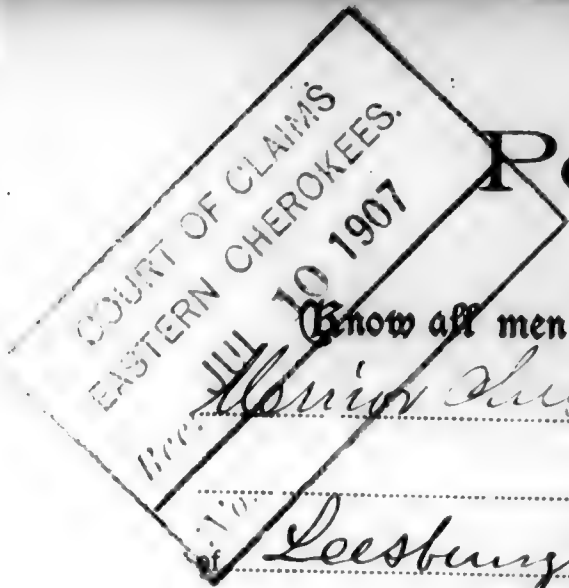 COURT OF CLAIMS
EASTERN CHEROKEES.
Rec. JUL 10 1907
No.
Po
Know all men
of Leesburg